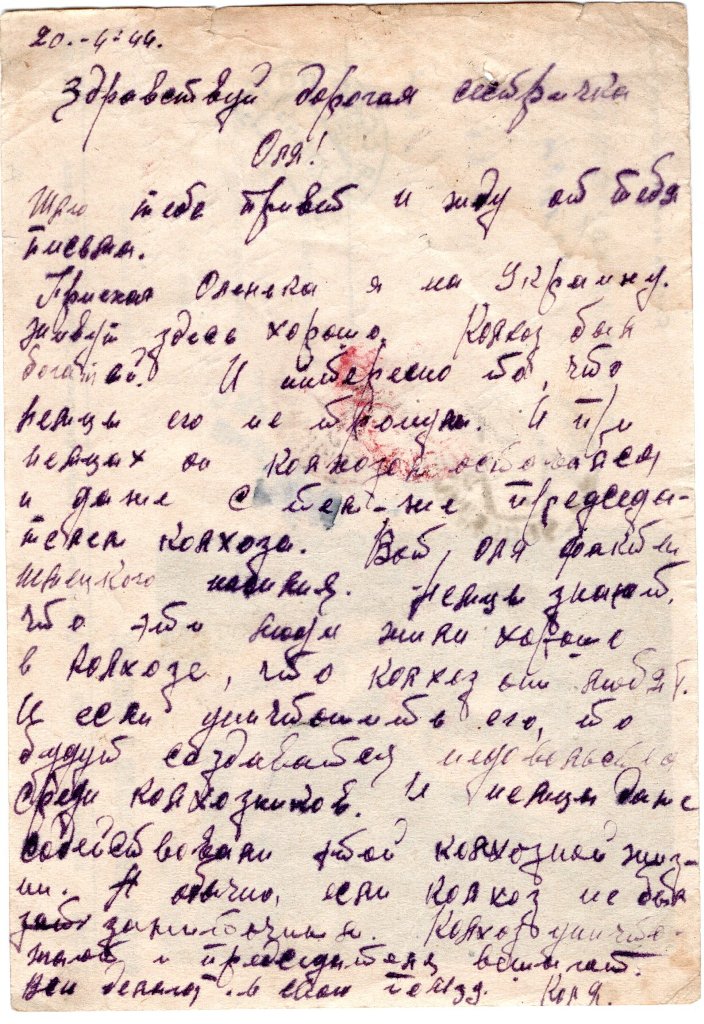 20.-4-44.
Здравствуй дорогая сестричка
Оля!
Шлю тебе привет и жду от тебя
письма.
Приехал Оленька я на Украину.
живут здесь хорошо. Колхоз был
богатый. И интересно то, что
немцы его не тронули. И при
немцах он колхозом оставался
и даже с тем-же председа-
телем колхоза. Вот, Оля факты
немцы знают,
что эти люди жили хорошо
в колхозе, что колхоз они любят.
И если уничтожить его, то
будут создаватся недовольства
среди колхозников. И немцы даже
содействовали этой колхозной жиз-
ни. А обычно, если колхоз не был
зажиточным. Колхоз уничто-
жают и председателя вешают.
Все делают в свою пользу. Коля.